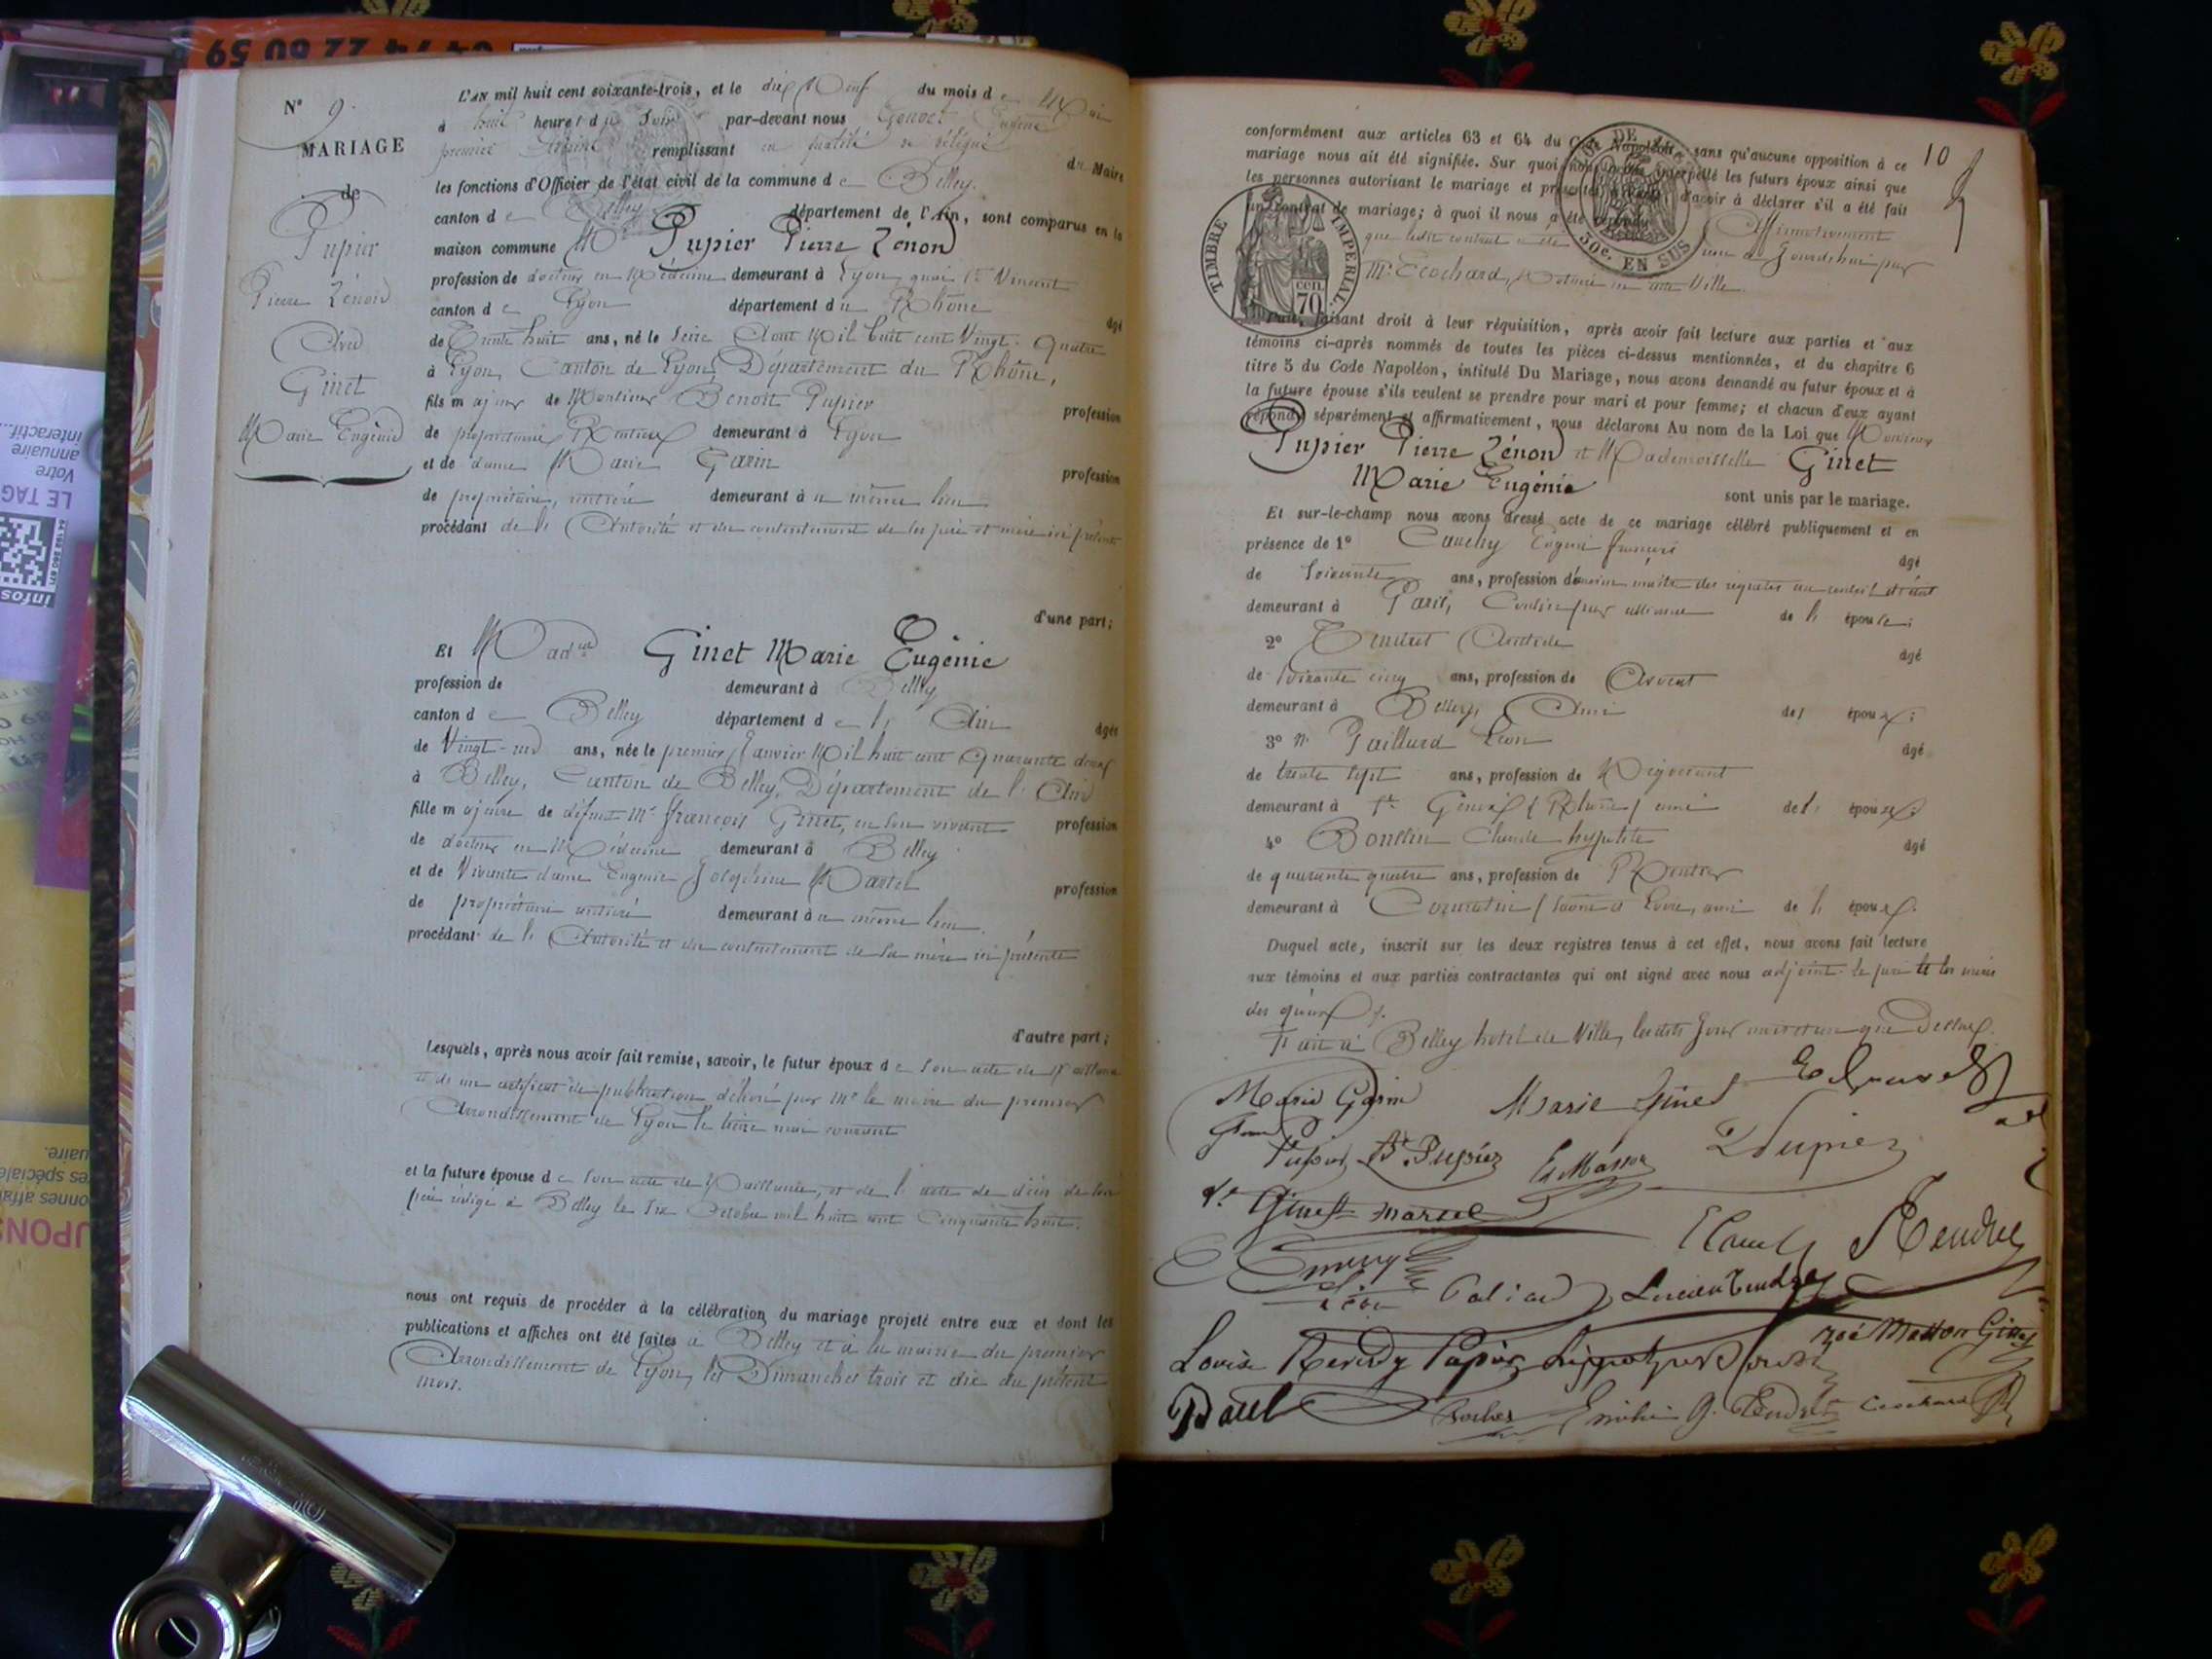 04 74 22 80 59
N° 9.
MARIAGE
de
Pupier
Pierre Zénon
Avec
Ginet
Marie Eugénie
L'AN mil huit cent soixante-trois, et le dix Neuf du mois de Mai
à huit heures du Soir par-devant nous
premier remplissant en qualité de délégué du Maire
les fonctions d'Officier de l'état civil de la commune de Belley.
canton de Belley département de l'Ain, sont comparus en la
maison commune Mr Pupier Pierre Zénon
profession de docteur en Médecine demeurant à Lyon, quai St Vincent
canton de Lyon département du Rhône âgé
de Trente huit ans, né le Seize Aout Mil huit cent Vingt-Quatre
à Lyon, Canton de Lyon, Département du Rhône,
fils majeur de Monsieur Benoit Pupier profession
de propriétaire Rentier demeurant à Lyon
et de dame Marie Garin profession
de propriétaire, rentière demeurant à u même lieu
procédant de l'Autorité et du consentement de ses père et mère ici présents
d'une part;
Et Madelle Ginet Marie Eugénie
profession de demeurant à Belley
canton de Belley département de l'Ain âgée
de Vingt-un ans, née le premier Janvier Mil huit cent Quarante deux
à Belley, Canton de Belley, Département de l'Ain
fille majeure de défunt Mr François Ginet, en son vivant profession
de docteur en Médecine demeurant à Belley
et de Vivante dame Eugénie Joséphine Martel profession
de propriétaire rentière demeurant à u même lieu.
procédant de l'Autorité et du consentement de sa mère ici présente
d'autre part;
Lesquels, après nous avoir fait remise, savoir, le futur époux de son acte de Naissance
et de un certificat de publication délivré par Mr le maire du premier
Arrondissement de Lyon le treize mai courant
et la future épouse de son acte de Naissance, et de l'acte de décès de son
père rédigé à Belley le Six Octobre mil huit cent Cinquante huit.
nous ont requis de procéder à la célébration du mariage projeté entre eux et dont les
publications et affiches ont été faites à Belley et à la mairie du premier
Arrondissement de Lyon, les Dimanches trois et dix du présent
mois.
10
conformément aux articles 63 et 64 du Code Napoléon, sans qu'aucune opposition à ce
mariage nous ait été signifiée. Sur quoi nous avons interpellé les futurs époux ainsi que
les personnes autorisant le mariage et présentes d'avoir à déclarer s'il a été fait
un contrat de mariage; à quoi il nous a été répondu Affirmativement
que ledit contrat a été aujourd'hui par
Mr Ecochard, Notaire en cette Ville.
TIMBRE IMPERIAL
70 cen.
30c. EN SUS
Puis, faisant droit à leur réquisition, après avoir fait lecture aux parties et aux
témoins ci-après nommés de toutes les pièces ci-dessus mentionnées, et du chapitre 6
titre 5 du Code Napoléon, intitulé Du Mariage, nous avons demandé au futur époux et à
la future épouse s'ils veulent se prendre pour mari et pour femme; et chacun d'eux ayant
répondu séparément et affirmativement, nous déclarons Au nom de la Loi que Monsieur
Pupier Pierre Zénon et Mademoiselle Ginet
Marie Eugénie sont unis par le mariage.
Et sur-le-champ nous avons dressé acte de ce mariage célébré publiquement et en
présence de 1° Cauchy Eugène françois âgé
de Soixante ans, profession d'ancien maître des requêtes au conseil d'état
demeurant à Paris, Cousin par alliance de l'épouse;
2° Tendret Aristide âgé
de soixante cinq ans, profession de Avocat
demeurant à Belley, Ami des époux;
3° Mr Paillard Léon âgé
de trente sept ans, profession de Négociant
demeurant à St Genis (Rhône) ami de l'époux;
4° Claude hippolite âgé
de quarante quatre ans, profession de Rentier
demeurant à Cormatin (Saône et Loire, ami de l'époux.
Duquel acte, inscrit sur les deux registres tenus à cet effet, nous avons fait lecture
aux témoins et aux parties contractantes qui ont signé avec nous adjoint le père et les mères
des époux.
Fait à Belley hotel de Ville, lesdits Jour mois et an que Dessus.
Marie Garin Marie Ginet
Pupier Bt Pupier Ed Masson Z Pupier
Ve Ginet Martel
E Cauchy A Tendret
Léon Paliard Lucien Tendret
Louise Reverdy Pupier Hippolyte Zoé Masson Ginet
Emilie G. Tendret Ecochard